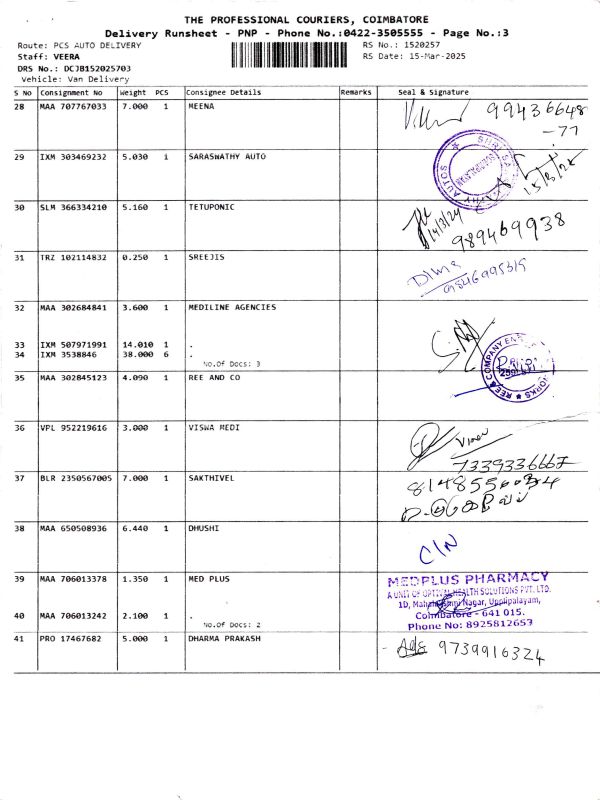 THE PROFESSIONAL COURIERS, COIMBATORE
Delivery Runsheet - PNP - Phone No.:0422-3505555 - Page No.:3
Route: PCS AUTO DELIVERY RS No.: 1520257
Staff: VEERA RS Date: 15-Mar-2025
DRS No.: DCJB152025703
Vehicle: Van Delivery
S No Consignment No Weight PCS Consignee Details Remarks Seal & Signature
28 MAA 707767033 7.000 1 MEENA 99436648
-77
29 IXM 303469232 5.030 1 SARASWATHY AUTO
AUTOS
15/3/25
30 SLM 366334210 5.160 1 TETUPONIC
14/3/24
989469938
31 TRZ 102114832 0.250 1 SREEJIS
9846995319
32 MAA 302684841 3.600 1 MEDILINE AGENCIES
33 IXM 507971991 14.010 1 .
34 IXM 3538846 38.000 6 .
No.Of Docs: 3
35 MAA 302845123 4.090 1 REE AND CO
REE & COMPANY
36 VPL 952219616 3.000 1 VISWA MEDI
7339336667
37 BLR 2350567005 7.000 1 SAKTHIVEL
38 MAA 650508936 6.440 1 DHUSHI
C/N
39 MAA 706013378 1.350 1 MED PLUS
MEDPLUS PHARMACY
A UNIT OF OPTIVAL HEALTH SOLUTIONS PVT. LTD.
1D, Nagar, Upplipalayam,
Coimbatore - 641 015.
Phone No: 8925812657
40 MAA 706013242 2.100 1 .
No.Of Docs: 2
41 PRO 17467682 5.000 1 DHARMA PRAKASH
9739916324